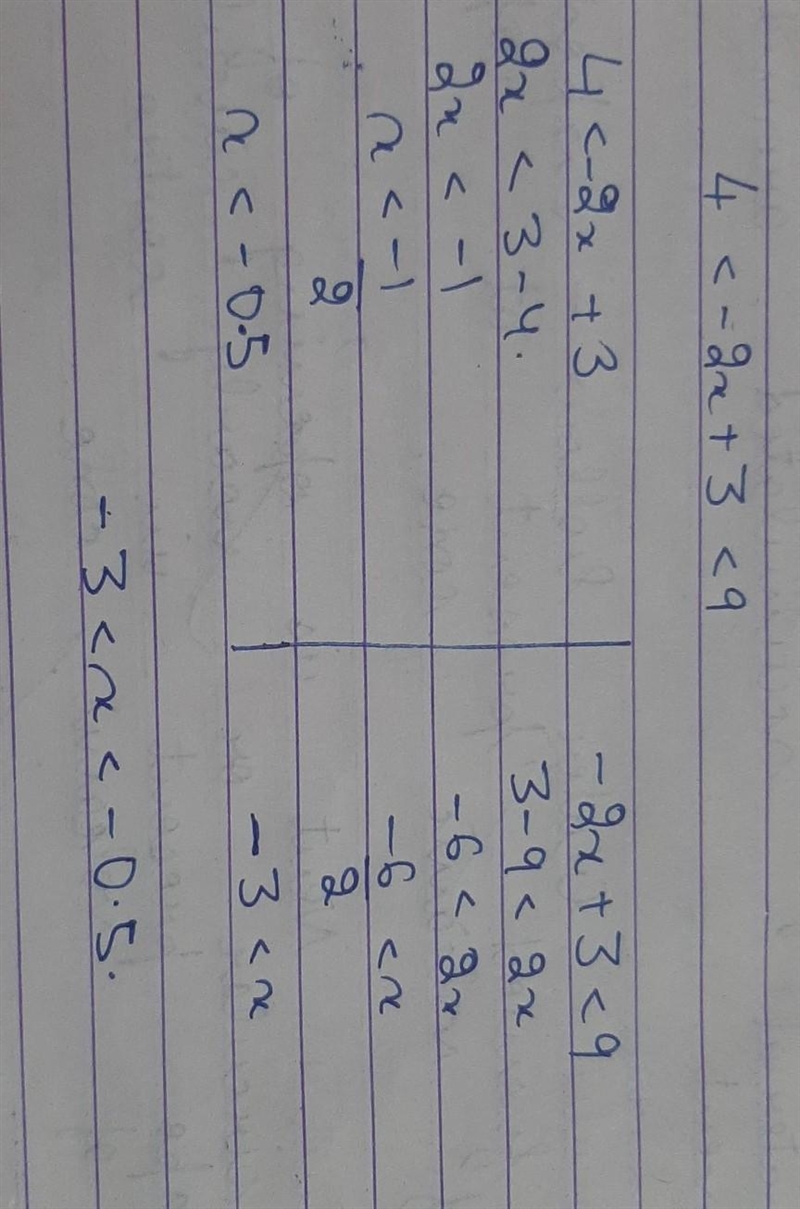 4 < -2x + 3 < 9
4 < -2x + 3
2x < 3 - 4.
2x < -1
x < -1
2
x < -0.5
-2x + 3 < 9
3 - 9 < 2x
-6 < 2x
-6 < x
2
-3 < x
-3 < x < -0.5.